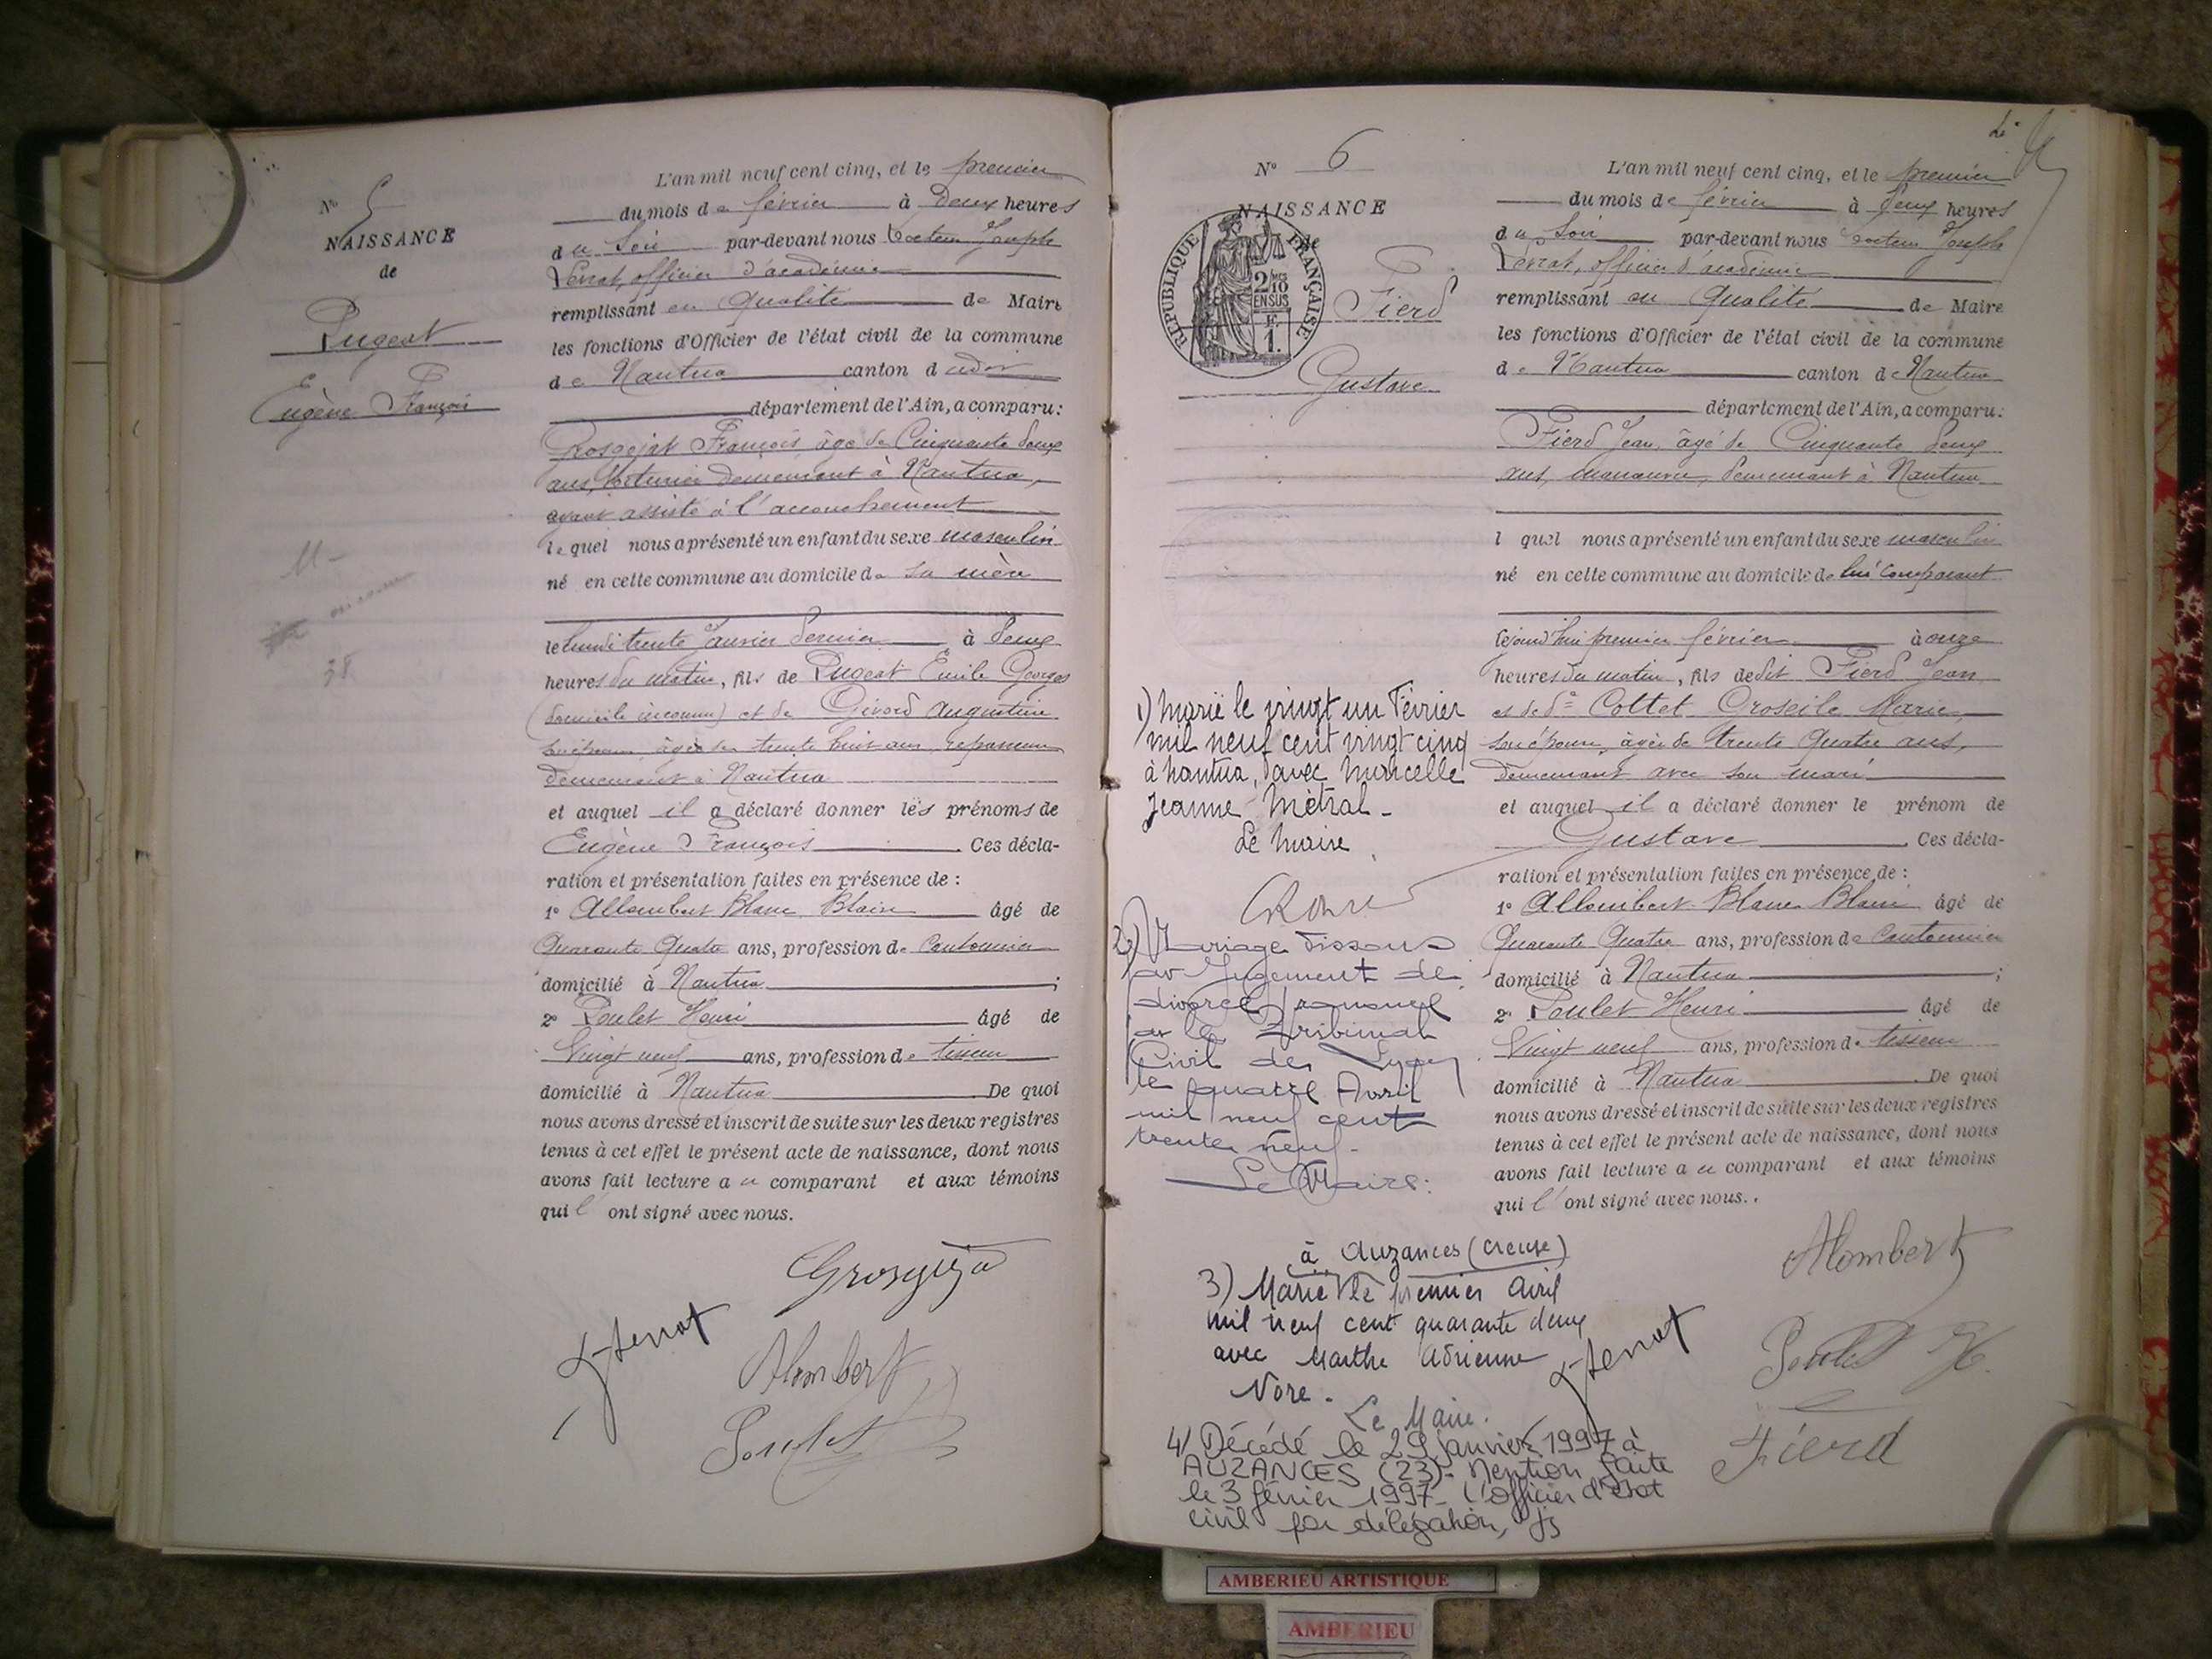 N° 5
NAISSANCE
de
Pugeat
Eugène François
L'an mil neuf cent cinq, et le premier
du mois de février à Deux heures
du Soir par-devant nous Docteur Joseph
officier d'académie
remplissant en qualité de Maire
les fonctions d'Officier de l'état civil de la commune
de Nantua canton dudit
département de l'Ain, a comparu:
François, âgé de Cinquante deux
ans, voiturier demeurant à Nantua,
ayant assisté à l'accouchement
lequel nous a présenté un enfant du sexe masculin
né en cette commune au domicile de sa mère
le lundi trente Janvier dernier à deux
heures du matin, fils de Pugeat Emile Georges
(domicile inconnu) et de Girord Augustine
son épouse âgée de trente huit ans, repasseuse
demeurant à Nantua
et auquel il a déclaré donner les prénoms de
Eugène François Ces décla-
ration et présentation faites en présence de :
1° Allombert Blanc Blaise âgé de
Quarante Quatre ans, profession de Cantonnier
domicilié à Nantua ;
2° Poulet Henri âgé de
Vingt neuf ans, profession de tisseur
domicilié à Nantua De quoi
nous avons dressé et inscrit de suite sur les deux registres
tenus à cet effet le présent acte de naissance, dont nous
avons fait lecture au comparant et aux témoins
qui l'ont signé avec nous.
Alombert
Poulet
N° 6
NAISSANCE
de
REPUBLIQUE FRANÇAISE
2/10
EN SUS
F.
1.
Fierd
Gustave
L'an mil neuf cent cinq, et le premier
du mois de février à Deux heures
du Soir par-devant nous Docteur Joseph
officier d'académie
remplissant en qualité de Maire
les fonctions d'Officier de l'état civil de la commune
de Nantua canton de Nantua
département de l'Ain, a comparu:
Fierd Jean, âgé de Cinquante deux
ans, manœuvre, demeurant à Nantua
l quel nous a présenté un enfant du sexe masculin
né en cette commune au domicile de lui comparant
cejourd'hui premier février à onze
heures du matin, fils dedit Fierd Jean
et de de Cottet Marie,
son épouse, âgée de trente Quatre ans,
demeurant avec son mari
et auquel il a déclaré donner le prénom de
Gustave Ces décla-
ration et présentation faites en présence de :
1° Allombert Blanc Blaise âgé de
Quarante Quatre ans, profession de Cantonnier
domicilié à Nantua ;
2° Poulet Henri âgé de
Vingt neuf ans, profession de tisseur
domicilié à Nantua De quoi
nous avons dressé et inscrit de suite sur les deux registres
tenus à cet effet le présent acte de naissance, dont nous
avons fait lecture au comparant et aux témoins
qui l'ont signé avec nous..
Alombert
Poulet H
Fierd
1) Marié le vingt un Février
mil neuf cent vingt cinq
à Nantua, avec Marcelle
Jeanne Métral -
Le Maire
2°) Mariage dissous
par Jugement de
divorce prononcé
par le Tribunal
Civil de Lyon
le quatre Avril
mil neuf cent
trente neuf -
Le Maire:
à Auzances (Creuse)
3) Marié le premier Avril
mil neuf cent quarante deux
avec Marthe Adrienne
Nore -
Le Maire.
4/ Décédé le 29 janvier 1997 à
AUZANCES (23)- Mention faite
le 3 février 1997- L'officier d'état
civil par délégation,
AMBERIEU ARTISTIQUE
AMBERIEU